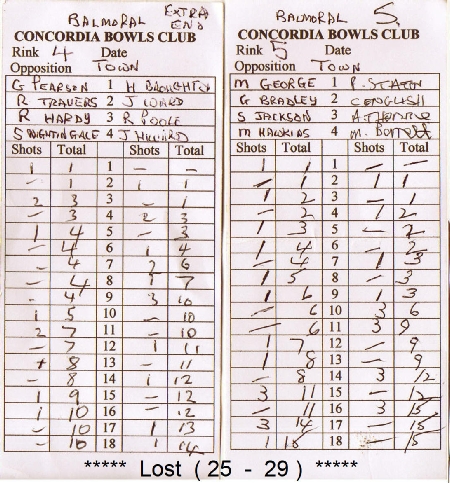 BALMORAL EXTRA END
CONCORDIA BOWLS CLUB
Rink 4 Date
Opposition TOWN
G PEARSON 1 H BROUGHTON
R TRAVERS 2 J WARD
R HARDY 3 R POOLE
S NIGHTINGALE 4 J HILLIARD
Shots Total Shots Total
1 1 1 - -
- 1 2 1 1
2 3 3 - 1
- 3 4 2 3
1 4 5 - 3
- 4 6 1 4
- 4 7 2 6
- 4 8 1 7
- 4 9 3 10
1 5 10 - 10
2 7 11 - 10
- 7 12 1 11
1 8 13 - 11
- 8 14 1 12
1 9 15 - 12
1 10 16 - 12
- 10 17 1 13
- 10 18 1 14
BALMORAL S.
CONCORDIA BOWLS CLUB
Rink 5 Date
Opposition TOWN
M GEORGE 1 P.
G BRADLEY 2 C ENGLISH
S JACKSON 3
M HAWKINS 4 M.
Shots Total Shots Total
1 1 1 - -
- 1 2 1 1
1 2 3 - 1
- 2 4 1 2
1 3 5 - 2
1 4 6 - 2
- 4 7 1 3
1 5 8 - 3
1 6 9 1 3
- 6 10 3 6
- 6 11 3 9
1 7 12 - 9
1 8 13 - 9
- 8 14 3 12
3 11 15 - 12
- 11 16 3 15
3 14 17 - 15
1 15 18 - 15
***** Lost ( 25 - 29 ) *****